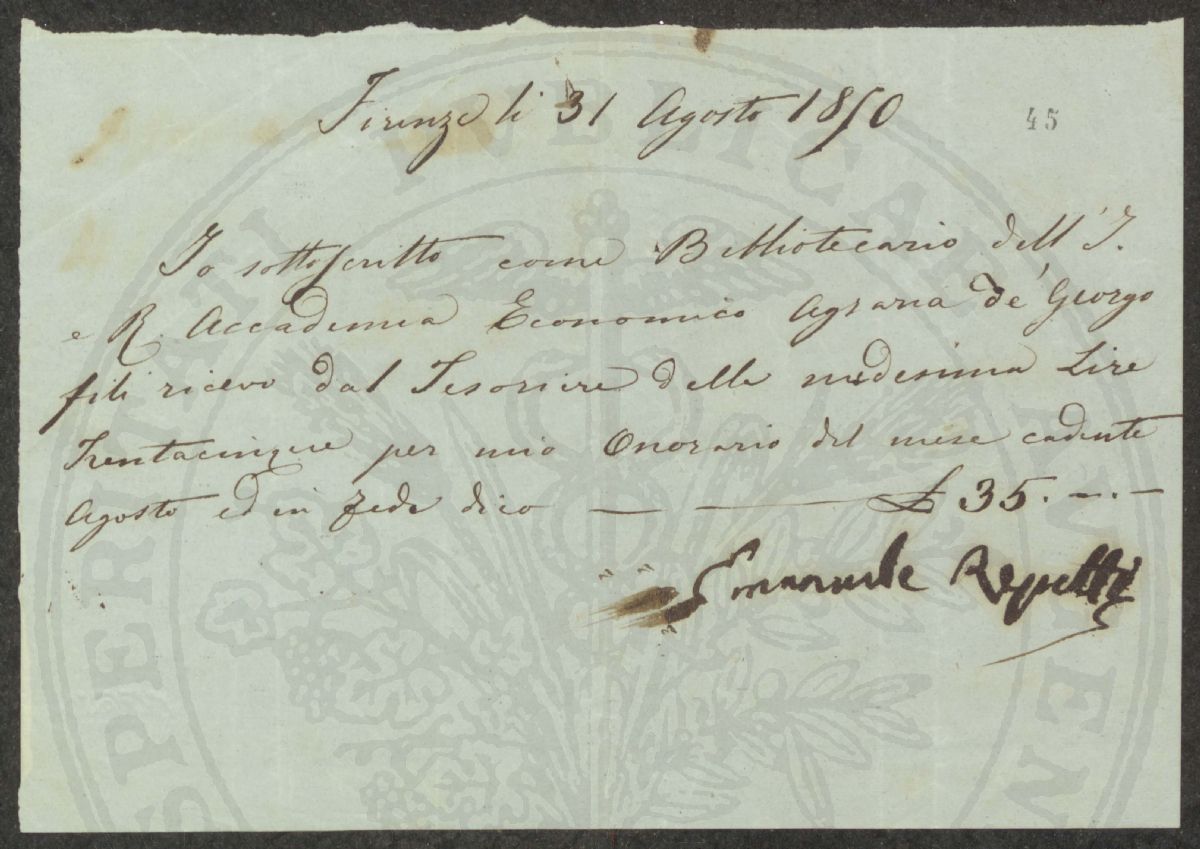 Firenze li 31 Agosto 1850
45
Io sottoscritto come Bibliotecario dell' I.
e R. Accademia Economico Agraria de' Georgo
fili ricevo dal Tesoriere della medesima Lire
Trentacinque per mio Onorario del mese cadente
Agosto ed in fede dico — — £ 35. —.—
Emanuele Repetti
PERITATI PUBLICAE AUGEN